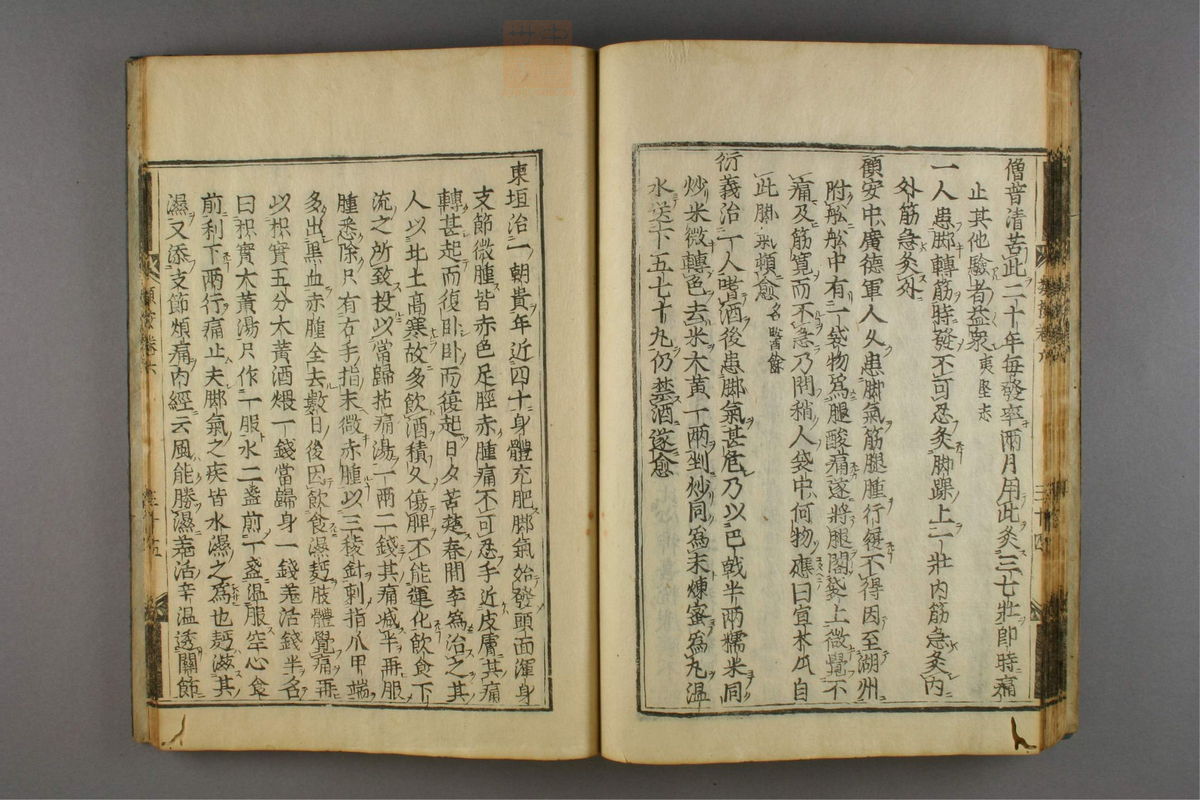 僧普清苦此二十年每發率兩月用此灸三七壯卽時痛
止其他驗者益衆 夷堅志
一人患脚轉筋時發不可忍灸脚踝上一壯內筋急灸內
外筋急灸外
顧安中廣德軍人久患脚氣筋腿腫行履不得因至湖州
附舩舩中有一袋物爲腿酸痛遂將腿閣袋上微覺不
痛及筋寬而不急乃問稍人袋中何物應曰宜木瓜自
此脚氣頓愈 名醫餘
衍義治一人嗜酒後患脚氣甚危乃以巴戟半兩糯米同
炒米微轉色去米大黃一兩剉炒同爲末煉蜜爲丸温
水送下五七十丸仍禁酒遂愈
東垣治一朝貴年近四十身體充肥脚氣始發頭面渾身
支節微腫皆赤色足脛赤腫痛不可忍手近皮膚其痛
轉甚起而復臥臥而復起日夕苦楚春間李爲治之其
人以北土高寒故多飲酒積久傷脾不能運化飲食下
流之所致投以當歸拈痛湯一兩二錢其痛减半再服
腫悉除只有右手指末微赤腫以三稜針刺指爪甲端
多出黑血赤腫全去數日後因飲食濕麪肢體覺痛再
以枳實五分大黃酒煨一錢當歸身一錢羌活錢半名
曰枳實大黃湯只作一服水二盞煎一盞温服空心食
前利下兩行痛止夫脚氣之疾皆水濕之爲也麪滋其
濕又添支節煩痛內經云風能勝濕羌活辛温透關節